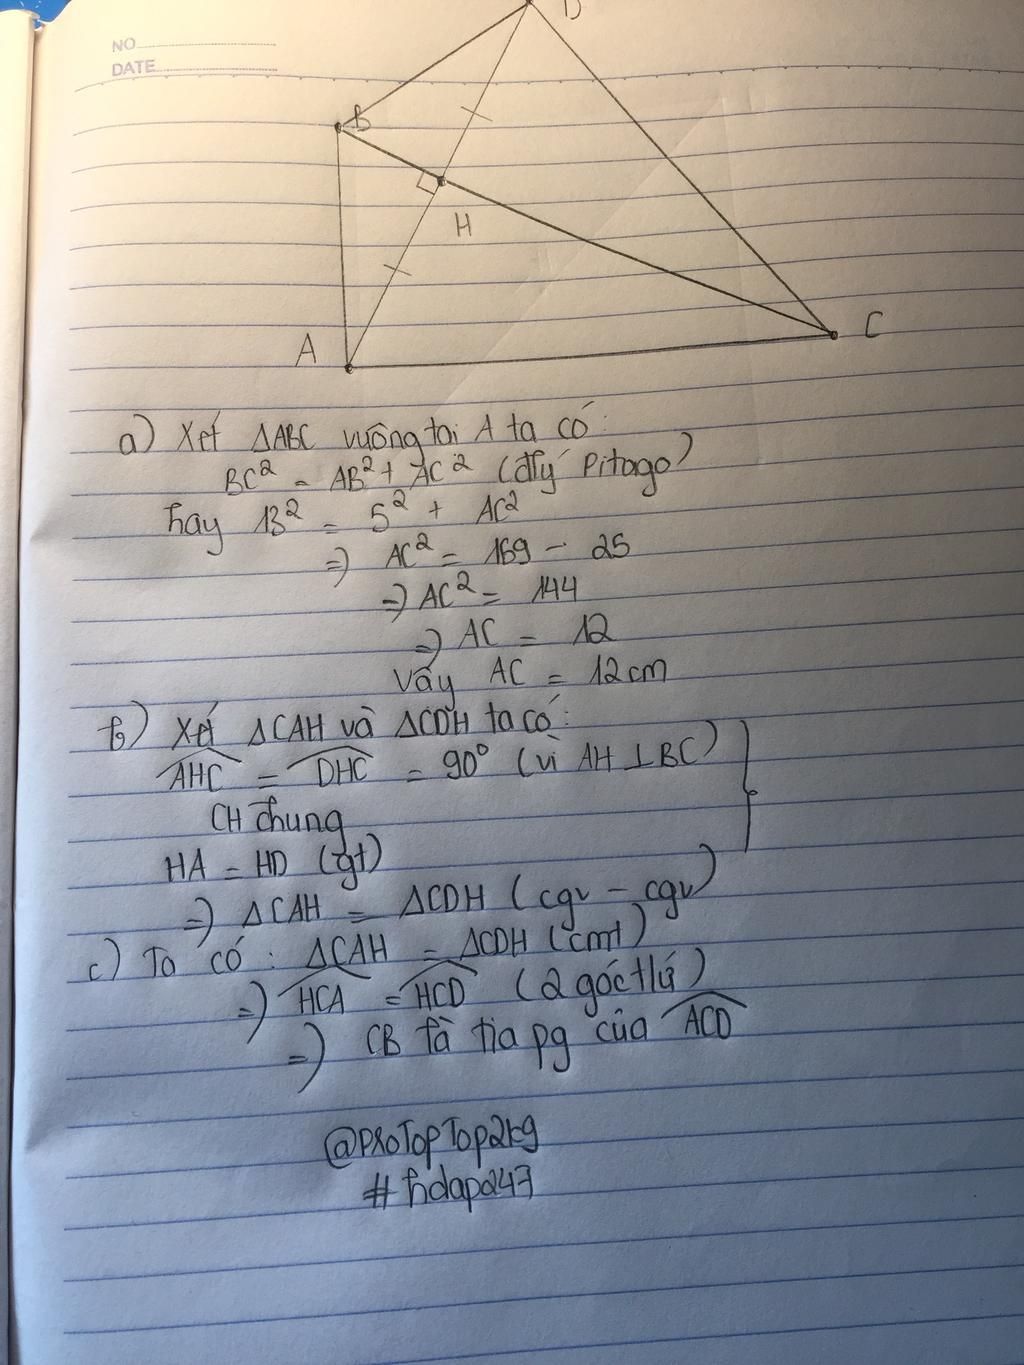 NO
DATE
D
B
H
A
C
a) Xét ΔABC vuông tại A ta có:
BC² = AB² + AC² (đlý Pitago)
hay 13² = 5² + AC²
=) AC² = 169 - 25
=) AC² = 144
=) AC = 12
Vây AC = 12cm
b) Xét ΔCAH và ΔCDH ta có:
AHC = DHC = 90° (vì AH ⊥ BC)
CH chung
HA = HD (gt)
=) ΔCAH = ΔCDH (cgv - cgv)
c) Ta có: ΔCAH = ΔCDH (cmt)
=) HCA = HCD (2 góc tlứ)
=) CB là tia pg của ACD
@ProTopTop2k9
#hdap247